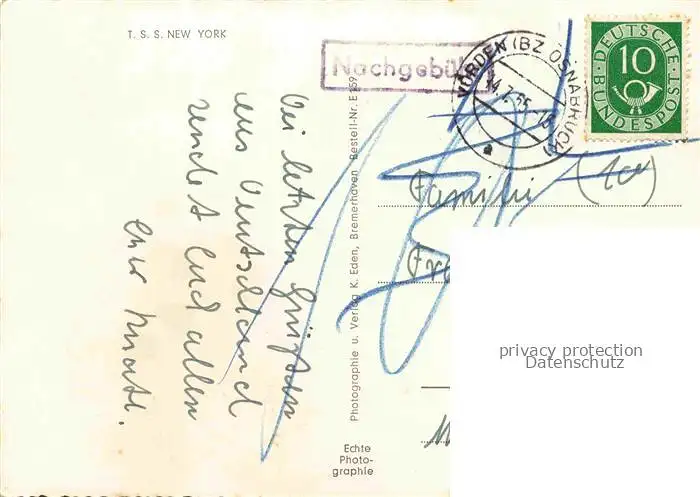 T. S. S. NEW YORK
Nachgebühr
VÖRDEN (BZ OSNABRÜCK)
DEUTSCHE
BUNDESPOST
10
Die letzten Grüße
aus Deutschland
sendet Euch allen
Familie
Photographie u. Verlag K. Eden, Bremerhaven Bestell-Nr. E 159
Echte
Photo-
graphie
privacy protection
Datenschutz